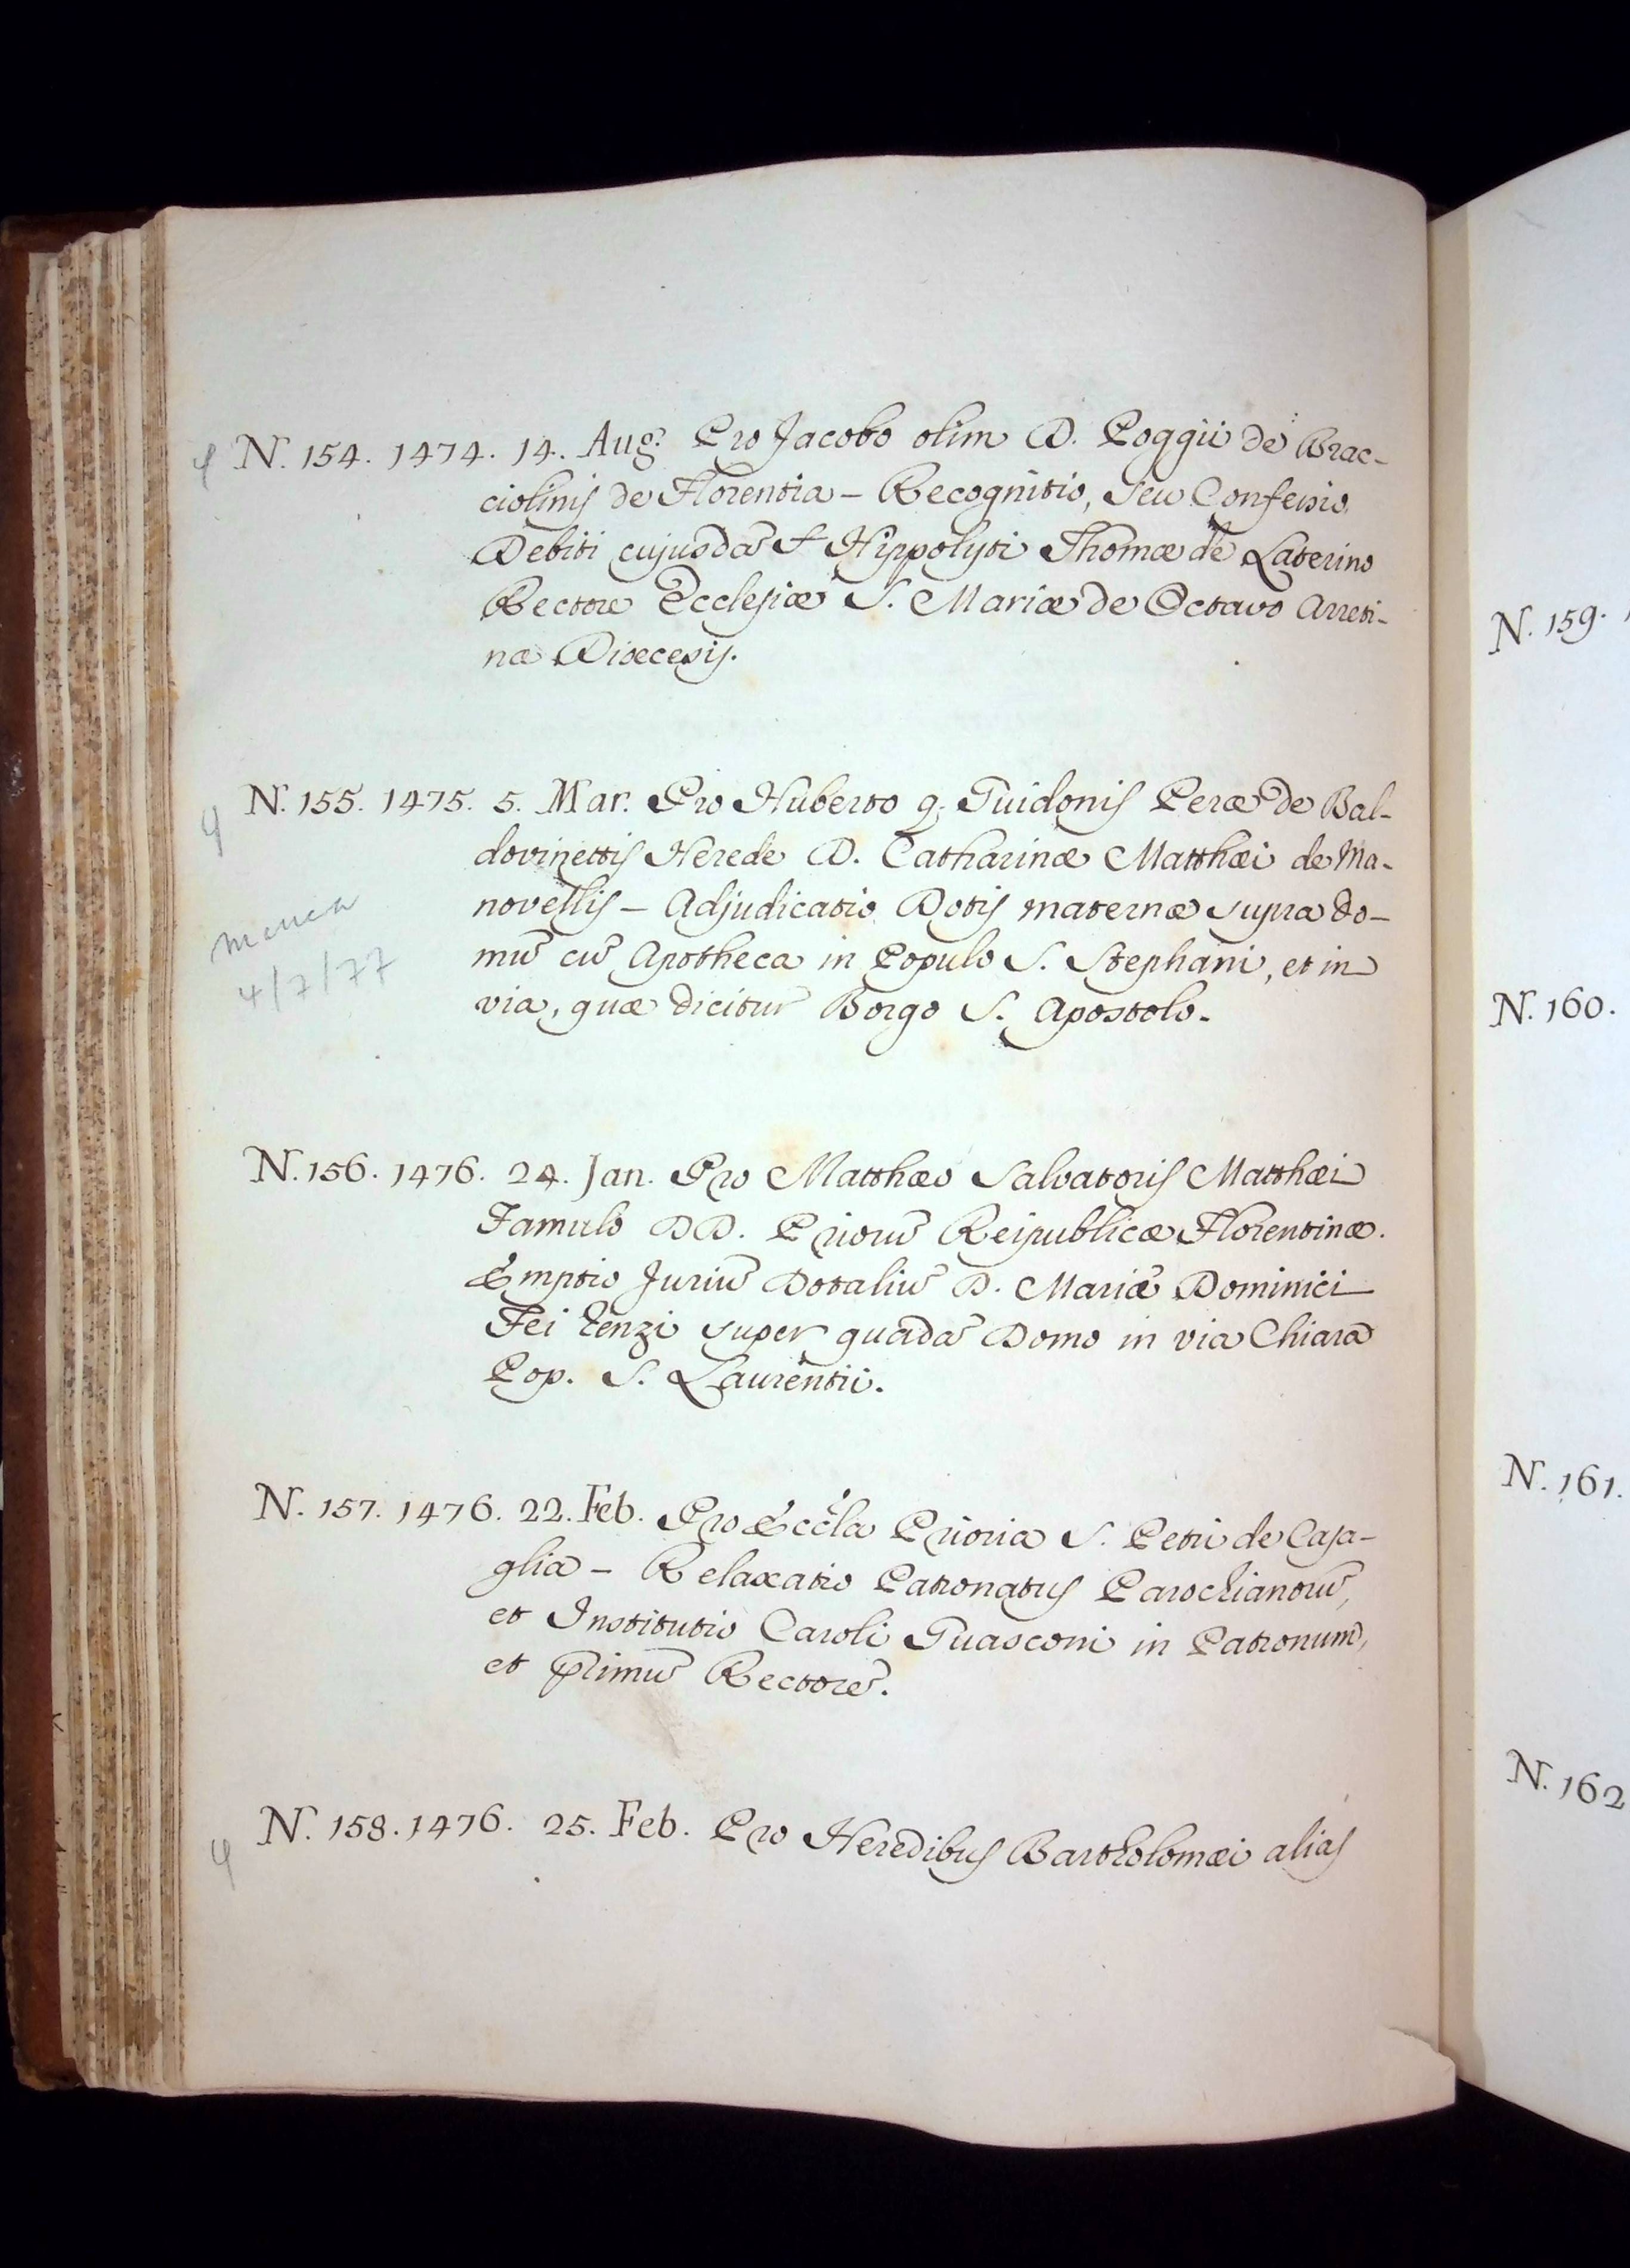 N. 154. 1474. 14. Aug. Pro Jacobo olim D. Poggii de Brac-
ciolinis de Florentia – Recognitio, seu Confessio
Debiti cujusdã F Hippolyti Thomæ de Laterino
Rectore Ecclesiæ S. Mariæ de Octavo Arreti-
næ Diœcesis.
N. 155. 1475. 5. Mar. Pro Huberto q. Guidonis Peræ de Bal-
dovinettis Herede D. Catharinæ Matthæi de Ma-
novellis – Adjudicatio Dotis maternæ supra do-
mũ cũ Apotheca in Populo S. Stephani, et in
via, quæ dicitur Borgo S. Apostolo.
manca
4/7/77
N. 156. 1476. 24. Jan. Pro Matthæo Salvatoris Matthæi
Famulo DD. Priorũ Reipublicæ Florentinæ.
Emptio Juriũ Dotaliũ D. Mariæ Dominici
Fei Renzi super quadã Domo in via Chiara
Pop. S. Laurentii.
N. 157. 1476. 22. Feb. Pro Eccla Prioria S. Petri de Casa-
glia – Relaxatio Patronatus Parochianorũ,
et Institutio Caroli Guasconi in Patronum,
et primũ Rectorẽ.
N. 158. 1476. 25. Feb. Pro Heredibus Bartholomæi alias
N. 159.
N. 160.
N. 161.
N. 162